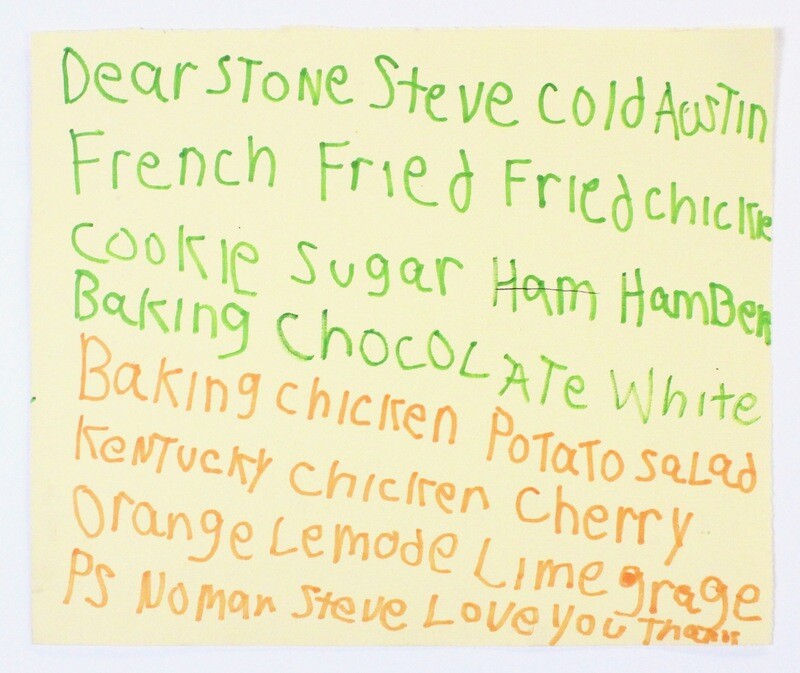 Dear STONE Steve cold Austin
French Fried Fried chicke
cookie sugar Ham HamBer
Baking CHOCOLATe White
Baking chicken POTATO SaLad
KeNTUCKY chicken Cherry
Orange Lemode Lime grage
PS Noman Steve Love you